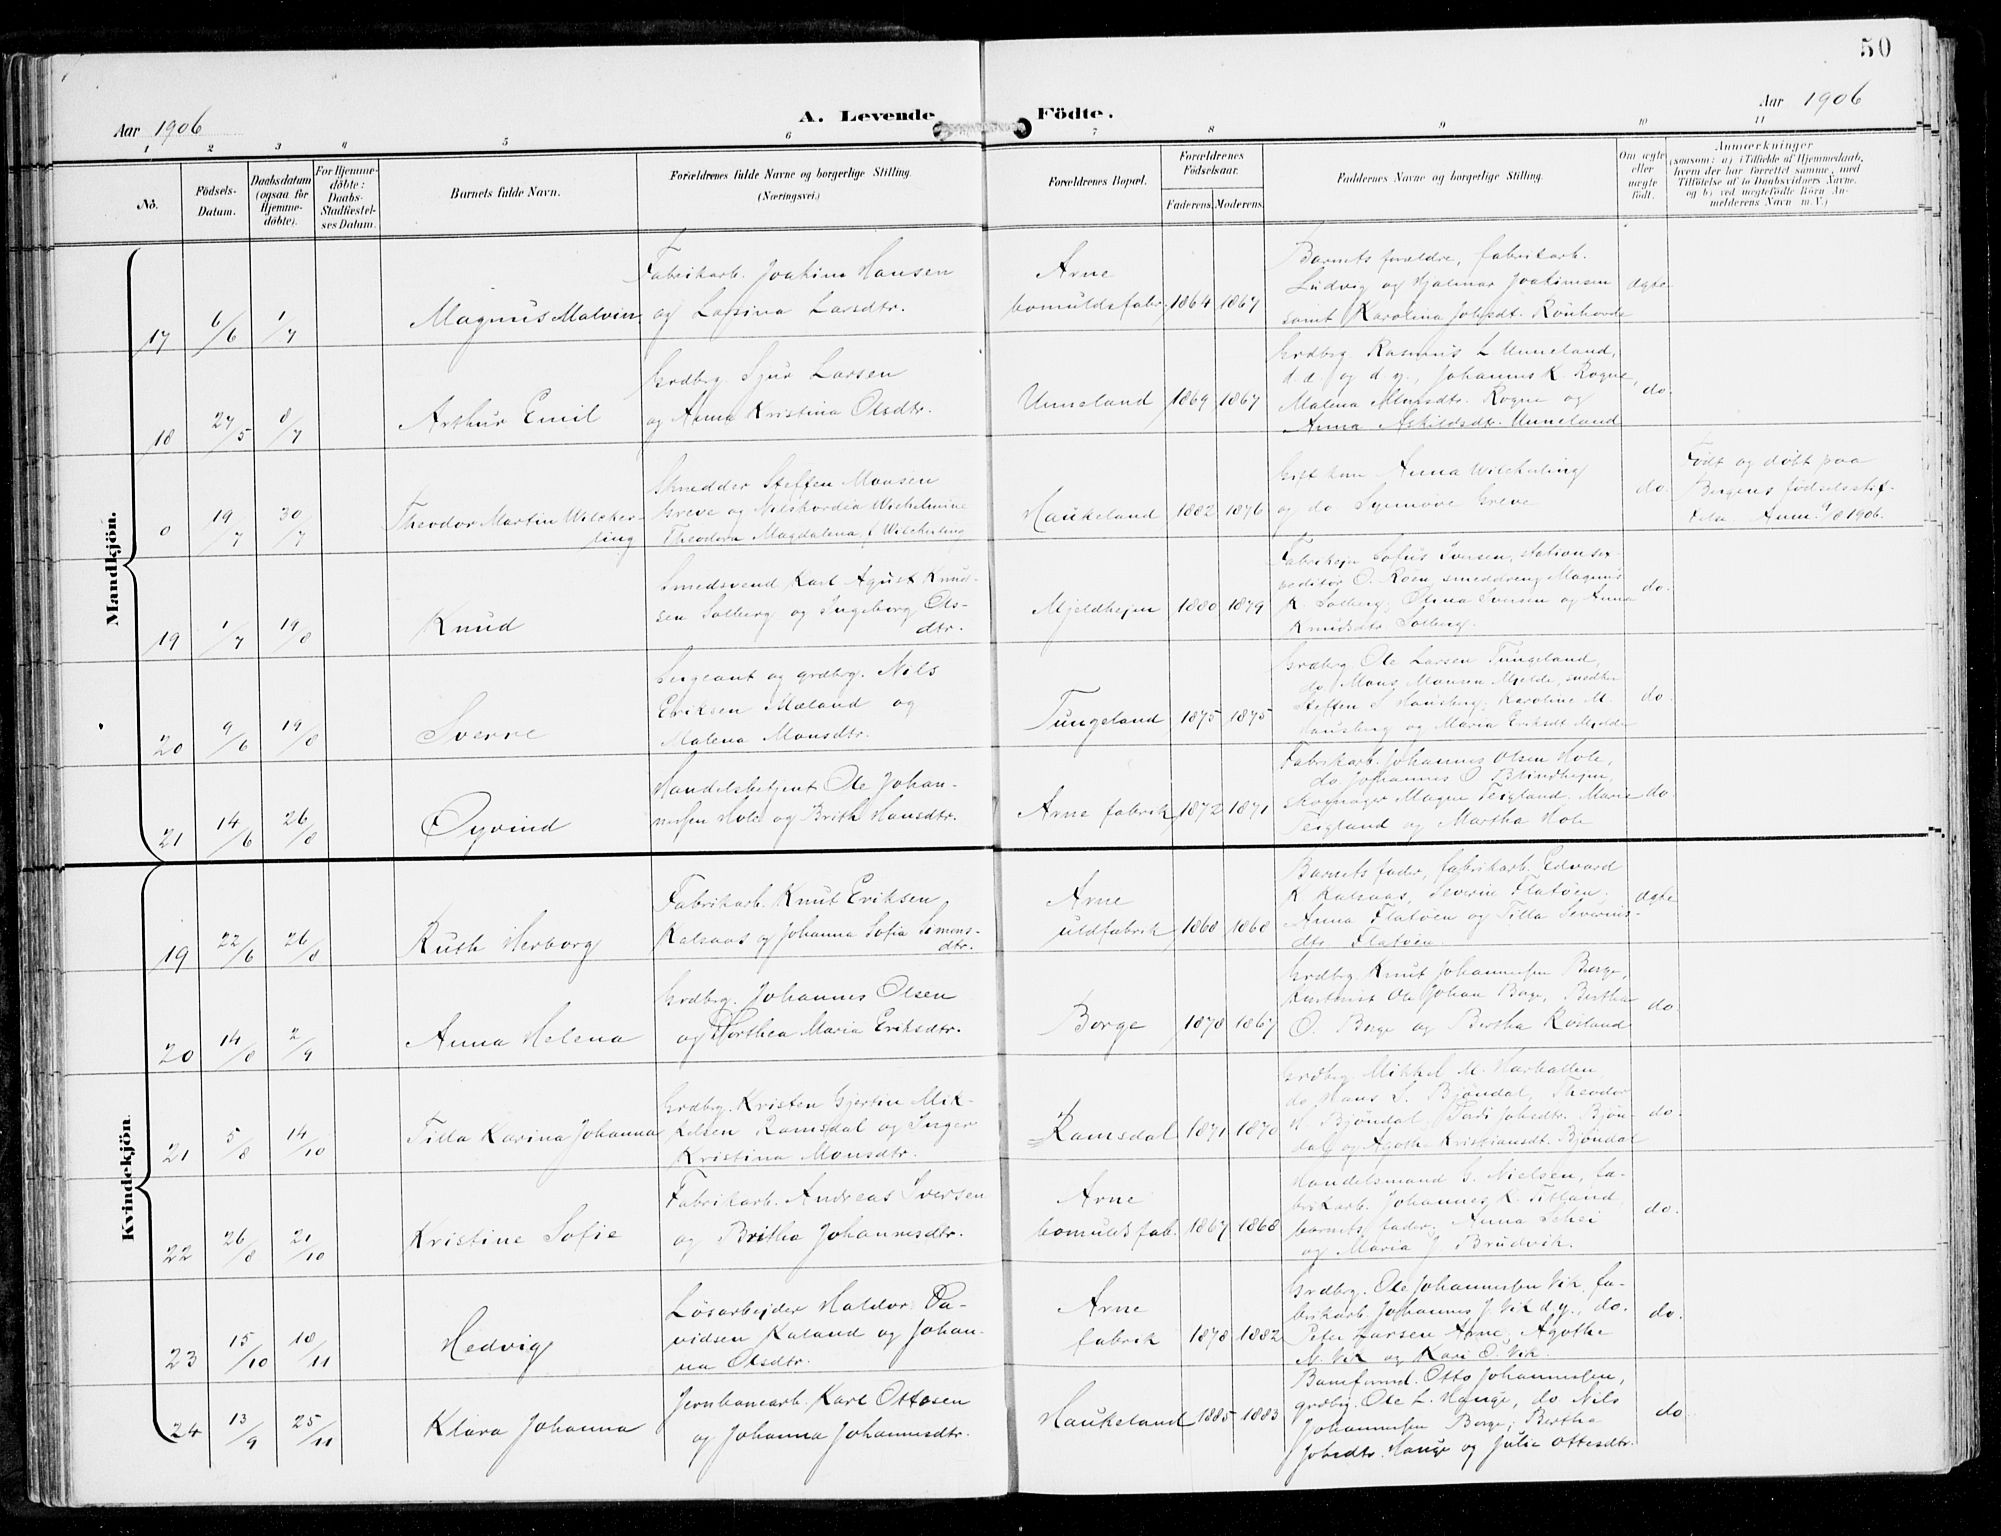 50
Aar 1906
A. Levende Födte.
Aar 1906
1 2 3 4 5 6 7 8 9 10 11
No.
Födsels-Datum.
Daabsdatum (ogsaa for Hjemme-döbte).
For Hjemme-döbte: Daabs-Stadfæstel-ses Datum.
Barnets fulde Navn.
Forældrenes fulde Navne og borgerlige Stilling.
(Næringsvei.)
Forældrenes Bopæl.
Forældrenes Födselsaar.
Faderens. Moderens.
Faddernes Navne og borgerlige Stilling.
Om ægte eller uægte födt.
Anmærkninger
(saasom: a) i Tilfælde af Hjemmedaab, hvem der har forrettet samme, med Tilföielse af to Daabsvidners Navne, og b) ved uægtefödte Börn Anmelderens Navn m. V.)
Mandkjön.
17 6/6 1/7 Magnus Malvin
Fabrikarb. Joakim Hansen
og Larsina Larsdtr.
Arne
bomuldsfabr. 1864 1867
Barnets forældre, fabrikarb.
Ludvig og Hjalmar Joakimsen
samt Karolina Johsdt. Rönhovde
ægte
18 27/5 8/7 Arthur Emil
Grdbrg. Sjur Larsen
og Anna Kristina Olsdtr.
Unneland 1869 1867
Grdbrg Rasmus L Unneland,
d æ og d. y., Johannes K. Rogne,
Malena Monsdtr. Rogne og
Anna Askildsdtr. Unneland
do.
0 19/7 30/7 Theodor Martin Wilcher-
ling
Skrædder Steffen Monsen
Greve og Nilskordia Wilhelmine
Theodora Magdalena f Wilcherling
Haukeland 1882 1876
Gift kone Anna Wilcherling
og do Synnöve Greve
do.
Født og døbt paa
Bergens fødselsstif-
telse. Anm. 9/8 1906.
19 1/7 19/8 Knud
Smedsvend Karl Agust Knud-
sen Solberg og Ingeborg Ols-
dtr.
Mjeldhejen 1880 1879
K. Solberg, Olina Iversen og Anna
Knudsdtr. Solberg.
do.
20 9/6 19/8 Sverre
Sergeant og grdbrg. Nils
Eriksen Mæland og
Malena Monsdtr.
Tungeland 1875 1875
Grdbrg Ole Larsen Tungeland,
do Mons Monsen Mjelde, snedker
Steffen S Hausberg, Karoline M.
Hausberg og Maria Eriksdt Mjelde
do.
21 14/6 26/8 Øyvind
Handelsbetjent Ole Johan-
nessen Hole og Brith Hansdtr.
Arne fabrik 1872 1871
Fabrikarb. Johannes Olsen Hole,
do Johannes O Blindhejm,
skomager Magne Teigland. Marie
Teigland og Martha Hole
do.
Kvindekjön.
19 22/6 26/8 Ruth Herborg
Fabrikarb. Knut Eriksen
Kalsaas og Johanna Sofia Simons-
dtr.
Arne
uldfabrik 1868 1868
Barnets fader, fabrikarb. Edvard
K Kalsaas, Severin Flatöen.
Anna Flatöen og Tilla Severins-
dtr. Flatöen.
ægte
20 14/8 2/9 Anna Helena
Grdbrg. Johannes Olsen
og Dorthea Maria Eriksdtr.
Borge 1878 1867
Grdbrg. Knut Johannessen Borge,
Ole Johan Borge, Bertha
O. Borge og Bertha Rosland
do.
21 5/8 14/10 Tilla Karina Johanna
Grdbrg. Kristen Gjertin Mik-
kelsen Ramsdal og Inger
Kristina Monsdtr.
Ramsdal 1871 1870
Grdbrg Mikkel M. Haukallen
do Hans S. Bjöndal, Theodor
H Bjöndal, Johsdtr. Bjön-
dal og Agothe Kristiansdt. Bjöndal
do.
22 26/8 21/10 Kristine Sofie
Fabrikarb. Andreas Iversen
og Britha Johannesdtr.
Arne
bomulds fab. 1867 1868
Handelsmand G. Nielsen, fa-
brikarb. Johannes K. Titland
barnets fader. Anna Schei
og Maria J Brudvik.
do.
23 15/10 18/11 Hedvig
Lösarbejder Haldor Da-
vidsen Kaland og Johan-
na Olsdtr.
Arne
fabrik 1878 1882
Grdbrg. Ole Johannessen Vik, fa-
brikarb. Johannes J. Vik d.y., do.
Peter Larsen Arne, Agothe
N. Vik og Kari O. Vik.
do.
24 13/9 25/11 Klara Johanna
Jernbanearb. Karl Ottosen
og Johanna Johannesdtr.
Haukeland 1885 1883
Baneformd. Otto Johannessen,
grdbrg. Ole L. Hauge, do Nils
Johannessen Borge, Bertha
Johsdtr. Hauge og Julie Ottesdtr.
do